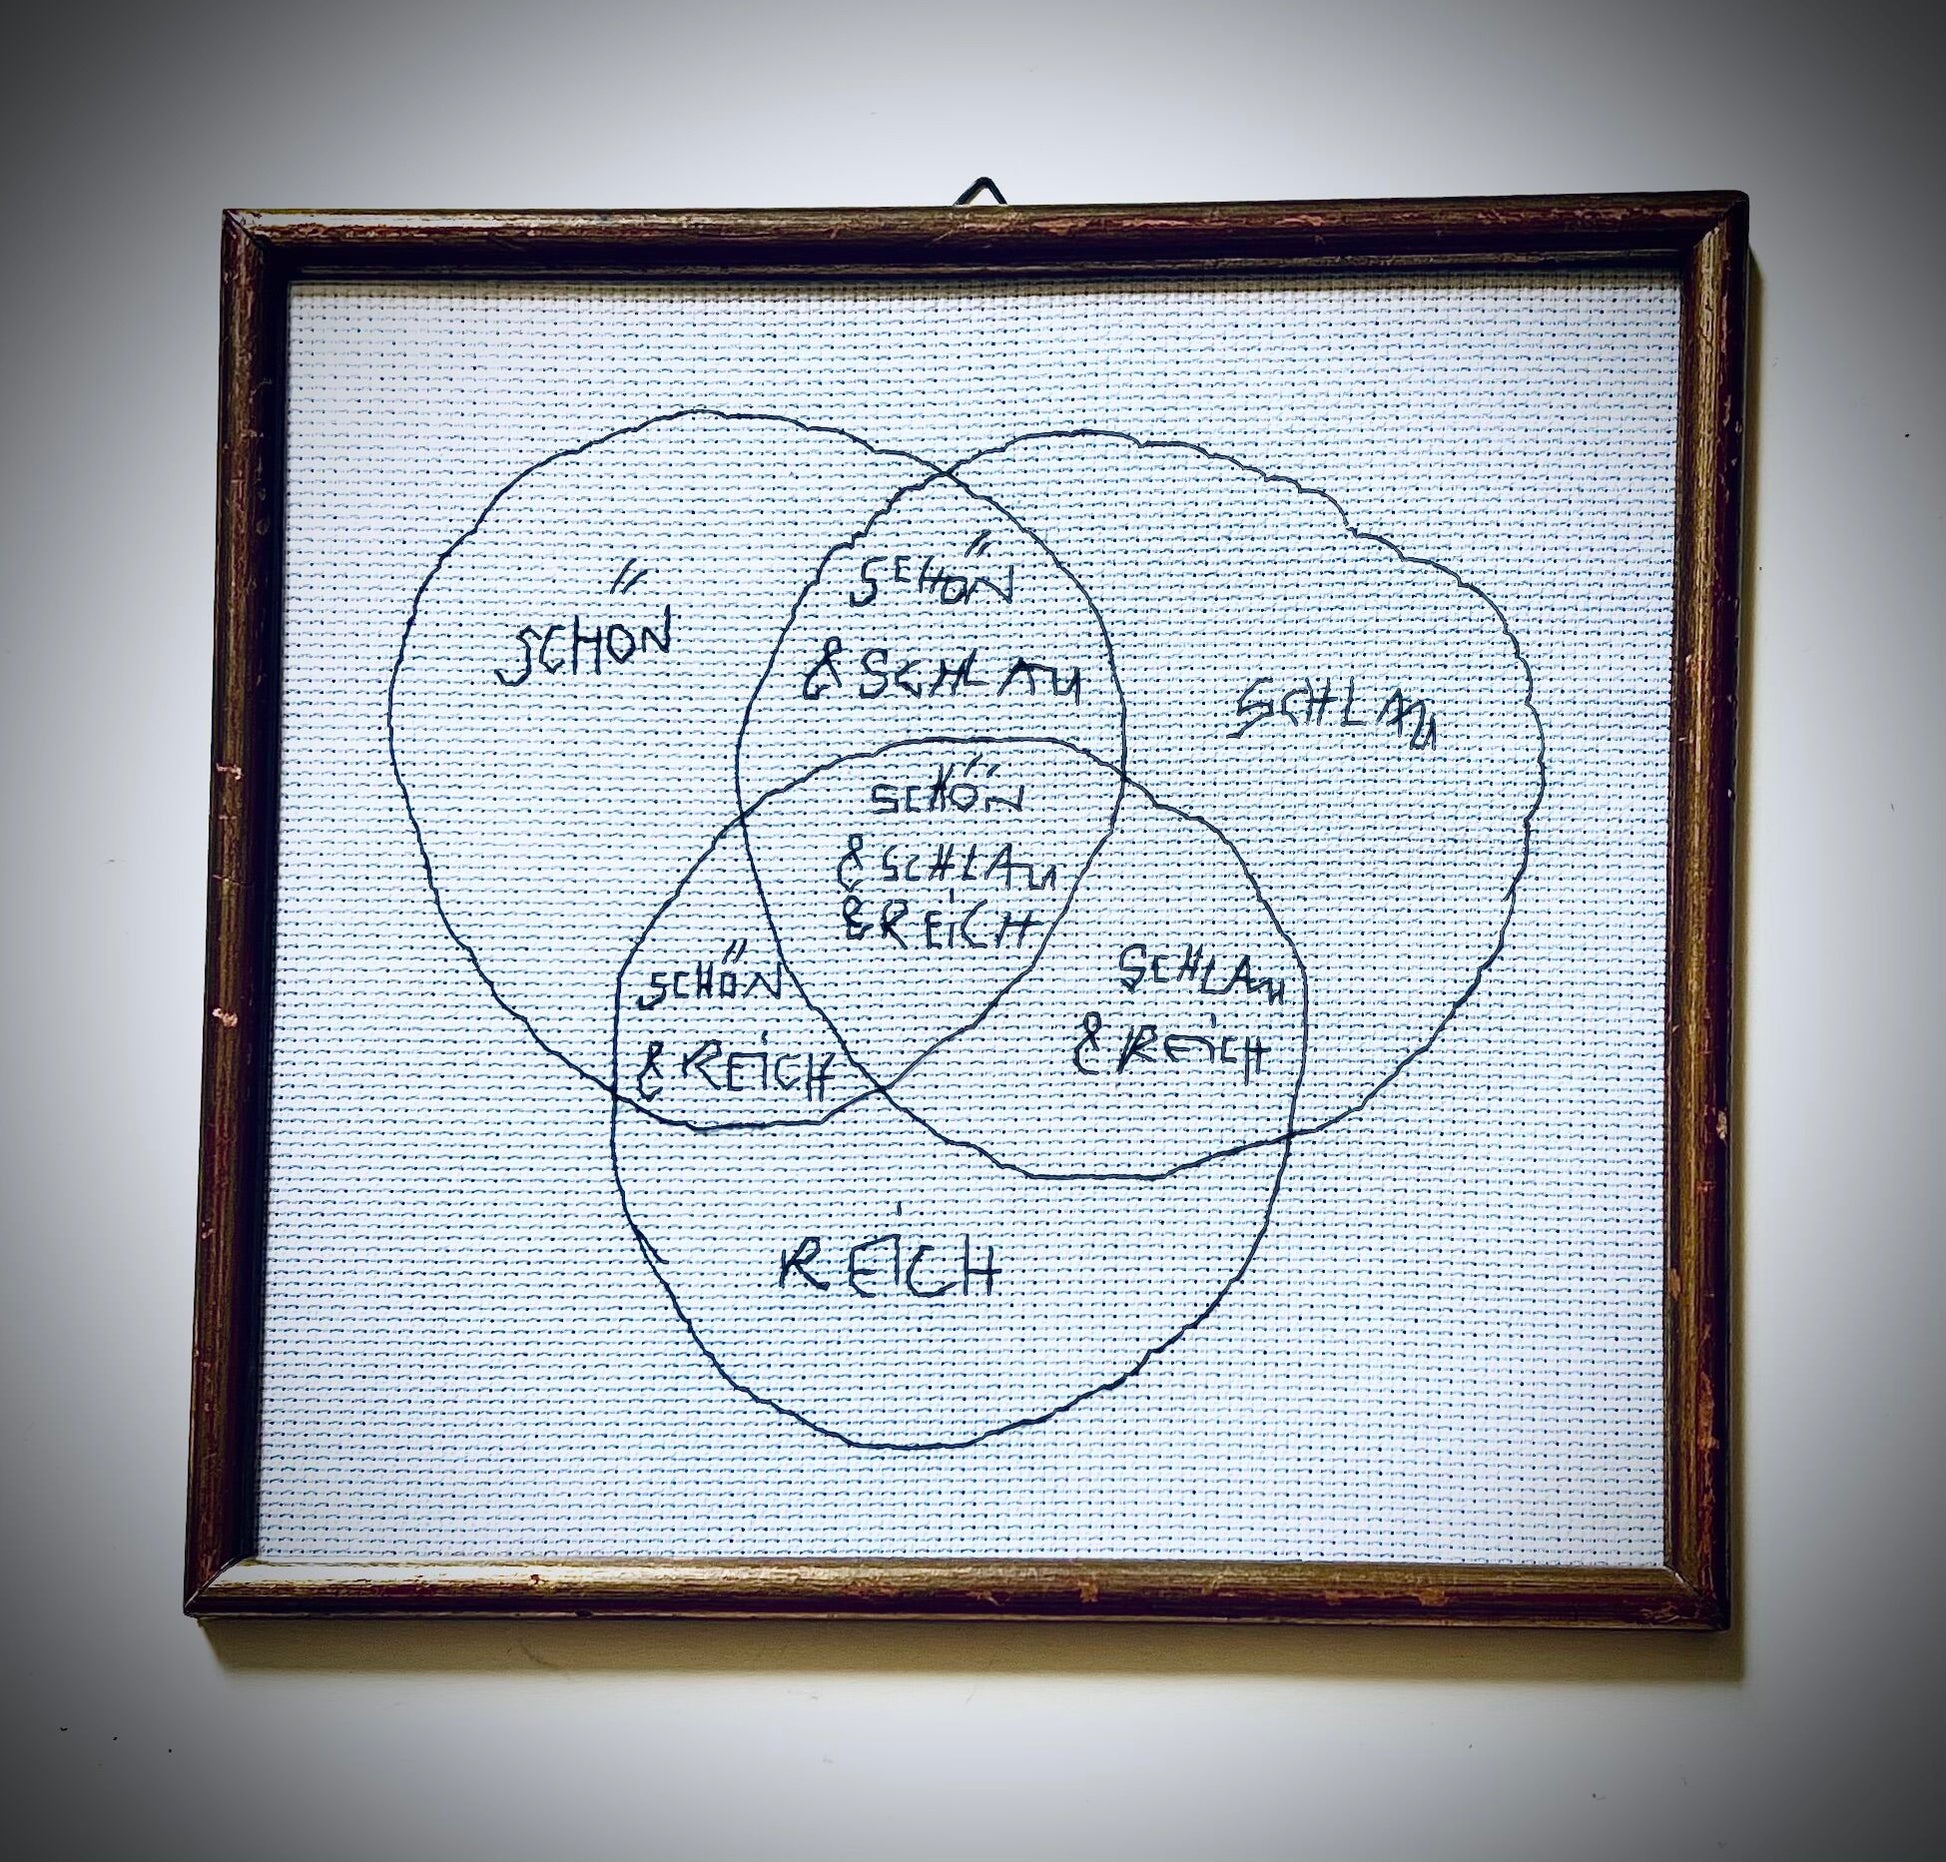 SCHÖN
SCHÖN
& SCHLAU
SCHLAU
SCHÖN
& SCHLAU
& REiCH
SCHÖN
& REiCH
SCHLAU
& REiCH
REiCH